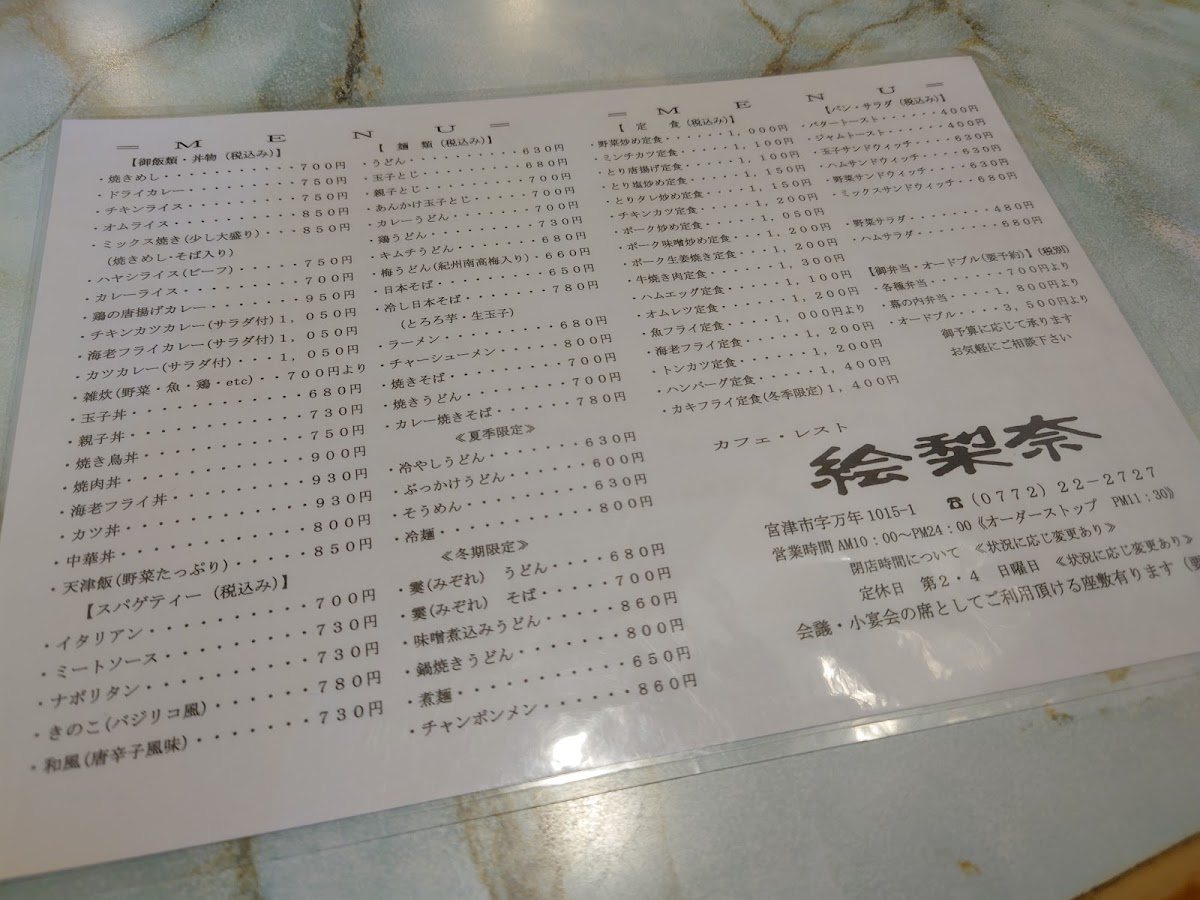 = MENU =
【御飯類・丼物（税込み）】
・焼きめし・・・・・・・・・・７００円
・ドライカレー・・・・・・・・７５０円
・チキンライス・・・・・・・・７５０円
・オムライス・・・・・・・・・８５０円
・ミックス焼き(少し大盛り)・・・８５０円
(焼きめし・そば入り)
・ハヤシライス(ビーフ)・・・・・７５０円
・カレーライス・・・・・・・・７００円
・鶏の唐揚げカレー・・・・・・９５０円
・チキンカツカレー(サラダ付)１，０５０円
・海老フライカレー(サラダ付)１，０５０円
・カツカレー(サラダ付)・・・１，０５０円
・雑炊(野菜・魚・鶏・etc)・・７００円より
・玉子丼・・・・・・・・・・・６８０円
・親子丼・・・・・・・・・・・７３０円
・焼き鳥丼・・・・・・・・・・７５０円
・焼肉丼・・・・・・・・・・・９００円
・海老フライ丼・・・・・・・・９３０円
・カツ丼・・・・・・・・・・・９３０円
・中華丼・・・・・・・・・・・８００円
・天津飯(野菜たっぷり)・・・・・８５０円
【スパゲティー（税込み）】
・イタリアン・・・・・・・・・７００円
・ミートソース・・・・・・・・７３０円
・ナポリタン・・・・・・・・・７３０円
・きのこ(バジリコ風)・・・・・・７８０円
・和風(唐辛子風味)・・・・・・・７３０円
【麺類（税込み）】
・うどん・・・・・・・・・・・６３０円
・玉子とじ・・・・・・・・・・６８０円
・親子とじ・・・・・・・・・・７００円
・あんかけ玉子とじ・・・・・・７００円
・カレーうどん・・・・・・・・７００円
・鶏うどん・・・・・・・・・・７３０円
・キムチうどん・・・・・・・・６８０円
・梅うどん(紀州南高梅入り)・６６０円
・日本そば・・・・・・・・・・６５０円
・冷し日本そば・・・・・・・・７８０円
(とろろ芋・生玉子)
・ラーメン・・・・・・・・・・６８０円
・チャーシューメン・・・・・・８００円
・焼きそば・・・・・・・・・・７００円
・焼きうどん・・・・・・・・・７００円
・カレー焼きそば・・・・・・・７８０円
≪夏季限定≫
・冷やしうどん・・・・・・・・６３０円
・ぶっかけうどん・・・・・・・６００円
・そうめん・・・・・・・・・・６３０円
・冷麺・・・・・・・・・・・・８００円
≪冬期限定≫
・霙(みぞれ) うどん・・・・・・６８０円
・霙(みぞれ) そば・・・・・・・７００円
・味噌煮込みうどん・・・・・・８６０円
・鍋焼きうどん・・・・・・・・８００円
・煮麺・・・・・・・・・・・・６５０円
・チャンポンメン・・・・・・・８６０円
= MENU =
【定食（税込み）】
・野菜炒め定食・・・・・・１，０００円
・ミンチカツ定食・・・・・１，１００円
・とり唐揚げ定食・・・・・１，１００円
・とり塩炒め定食・・・・・１，１５０円
・とりタレ炒め定食・・・・１，１５０円
・チキンカツ定食・・・・・１，２００円
・ポーク炒め定食・・・・・１，０５０円
・ポーク味噌炒め定食・・・１，２００円
・ポーク生姜焼き定食・・・１，２００円
・牛焼き肉定食・・・・・・１，３００円
・ハムエッグ定食・・・・・１，１００円
・オムレツ定食・・・・・・１，２００円
・魚フライ定食・・・・１，０００円より
・海老フライ定食・・・・・１，２００円
・トンカツ定食・・・・・・１，２００円
・ハンバーグ定食・・・・・１，４００円
・カキフライ定食(冬季限定)１，４００円
【パン・サラダ（税込み）】
・バタートースト・・・・・・４００円
・ジャムトースト・・・・・・４００円
・玉子サンドウィッチ・・・・６３０円
・ハムサンドウィッチ・・・・６３０円
・野菜サンドウィッチ・・・・６３０円
・ミックスサンドウィッチ・・６８０円
・野菜サラダ・・・・・・・・４８０円
・ハムサラダ・・・・・・・・６８０円
【御弁当・オードブル(要予約)】(税別)
・各種弁当・・・・・・・７００円より
・幕の内弁当・・・・１，８００円より
・オードブル・・・・３，５００円より
御予算に応じて承ります
お気軽にご相談下さい
カフェ・レスト
絵梨奈
宮津市字万年1015−1 ☎(０７７２)２２−２７２７
営業時間AM10：00〜PM24：00《オーダーストップ PM11：30》
閉店時間について ≪状況に応じ変更あり≫
定休日 第２・４ 日曜日 ≪状況に応じ変更あり≫
会議・小宴会の席としてご利用頂ける座敷有ります（要